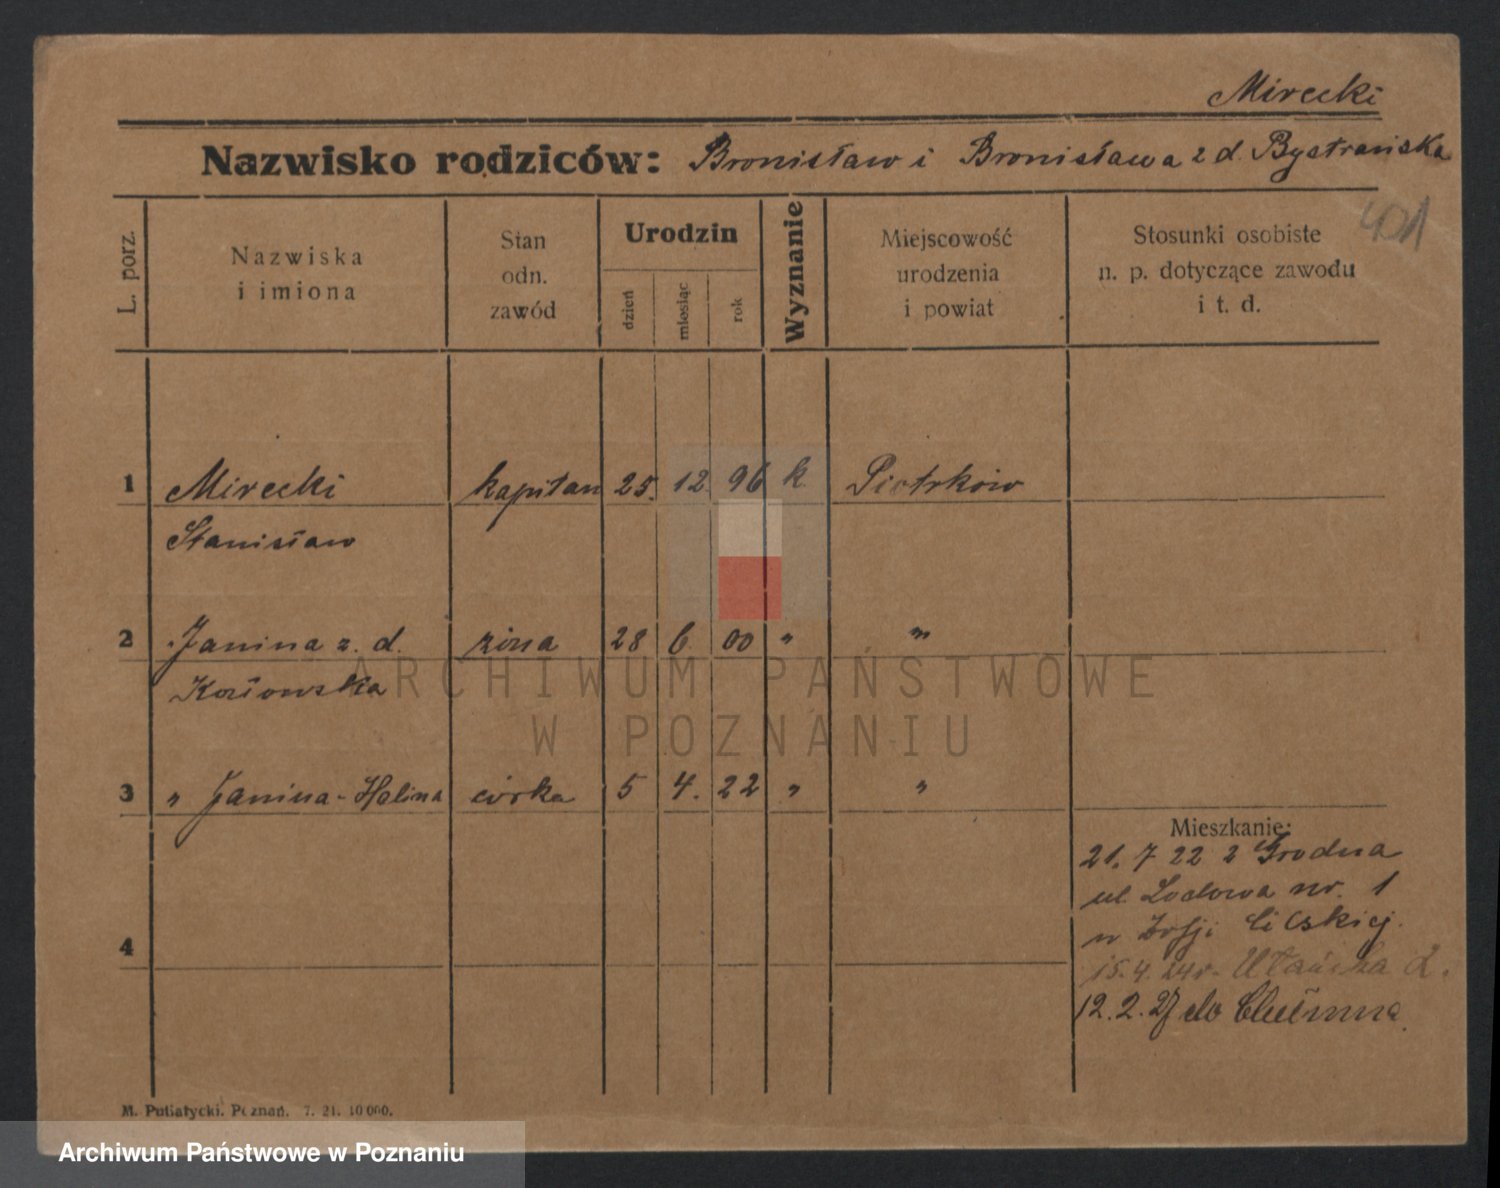 Mirecki
Nazwisko rodziców: Bronisław i Bronisława z d. Bystrańska
401
L. porz.
Nazwiska
i imiona
Stan
odn.
zawód
Urodzin
dzień
miesiąc
rok
Wyznanie
Miejscowość
urodzenia
i powiat
Stosunki osobiste
n. p. dotyczące zawodu
i t. d.
1 Mirecki kapitan 25. 12 96 k. Piotrków
Stanisław
2 Janina z. d. żona 28 6. 00 " "
Kozłowska
3 " Janina-Halina córka 5 4. 22 " "
4
Mieszkanie:
21. 7 22 z Grodna
ul. Lodowa nr. 1
u Zofji
15.4.24r. Ułańska 2.
12.2.27 do Chełmna.
M. Putiatycki. Poznań. 7. 21. 10 000.
ARCHIWUM PAŃSTWOWE
W POZNANIU
Archiwum Państwowe w Poznaniu